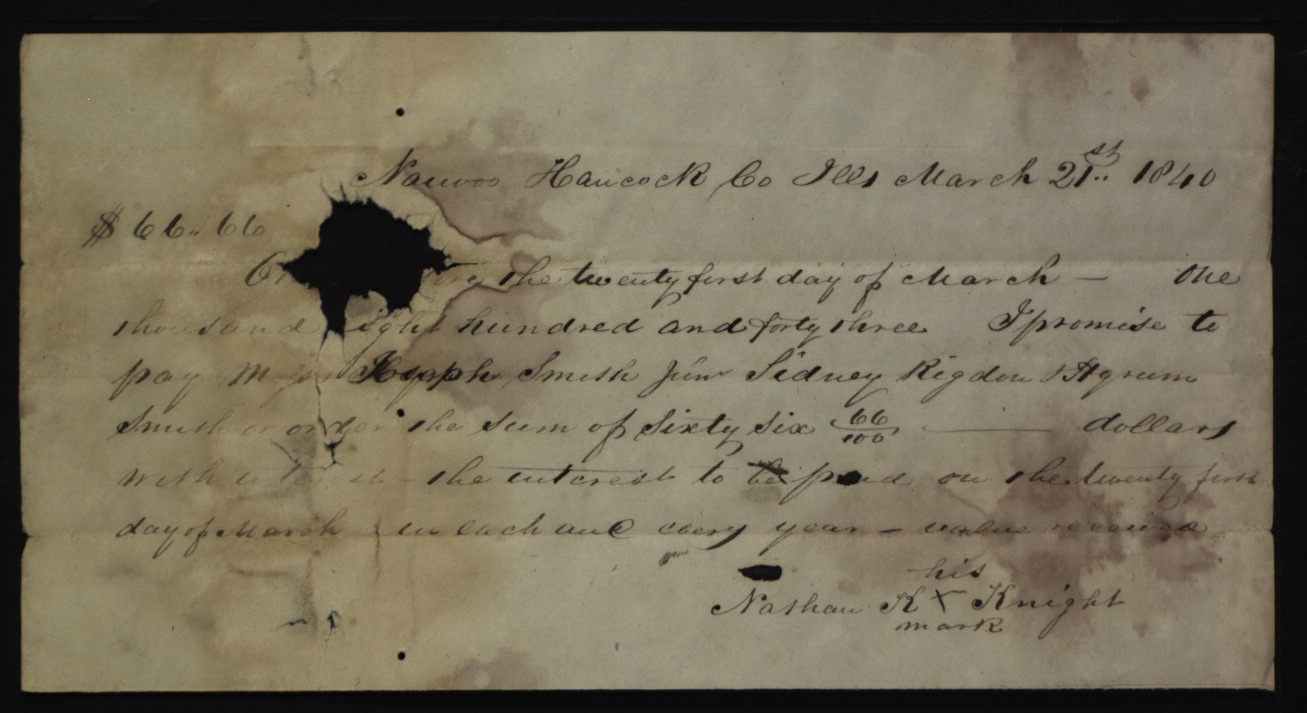 Nauvoo Hancock Co Ills March 21st 1840
$ 66.. 66
the twenty first day of March — One
thousand eight hundred and forty three I promise to
pay Joseph Smith Junr Sidney Rigdon & Hyrum
Smith or order the sum of Sixty Six 66/100 —— dollars
with interest - the interest to be paid on the twenty first
day of March in each and every year - value received
his
Nathan K X Knight
mark